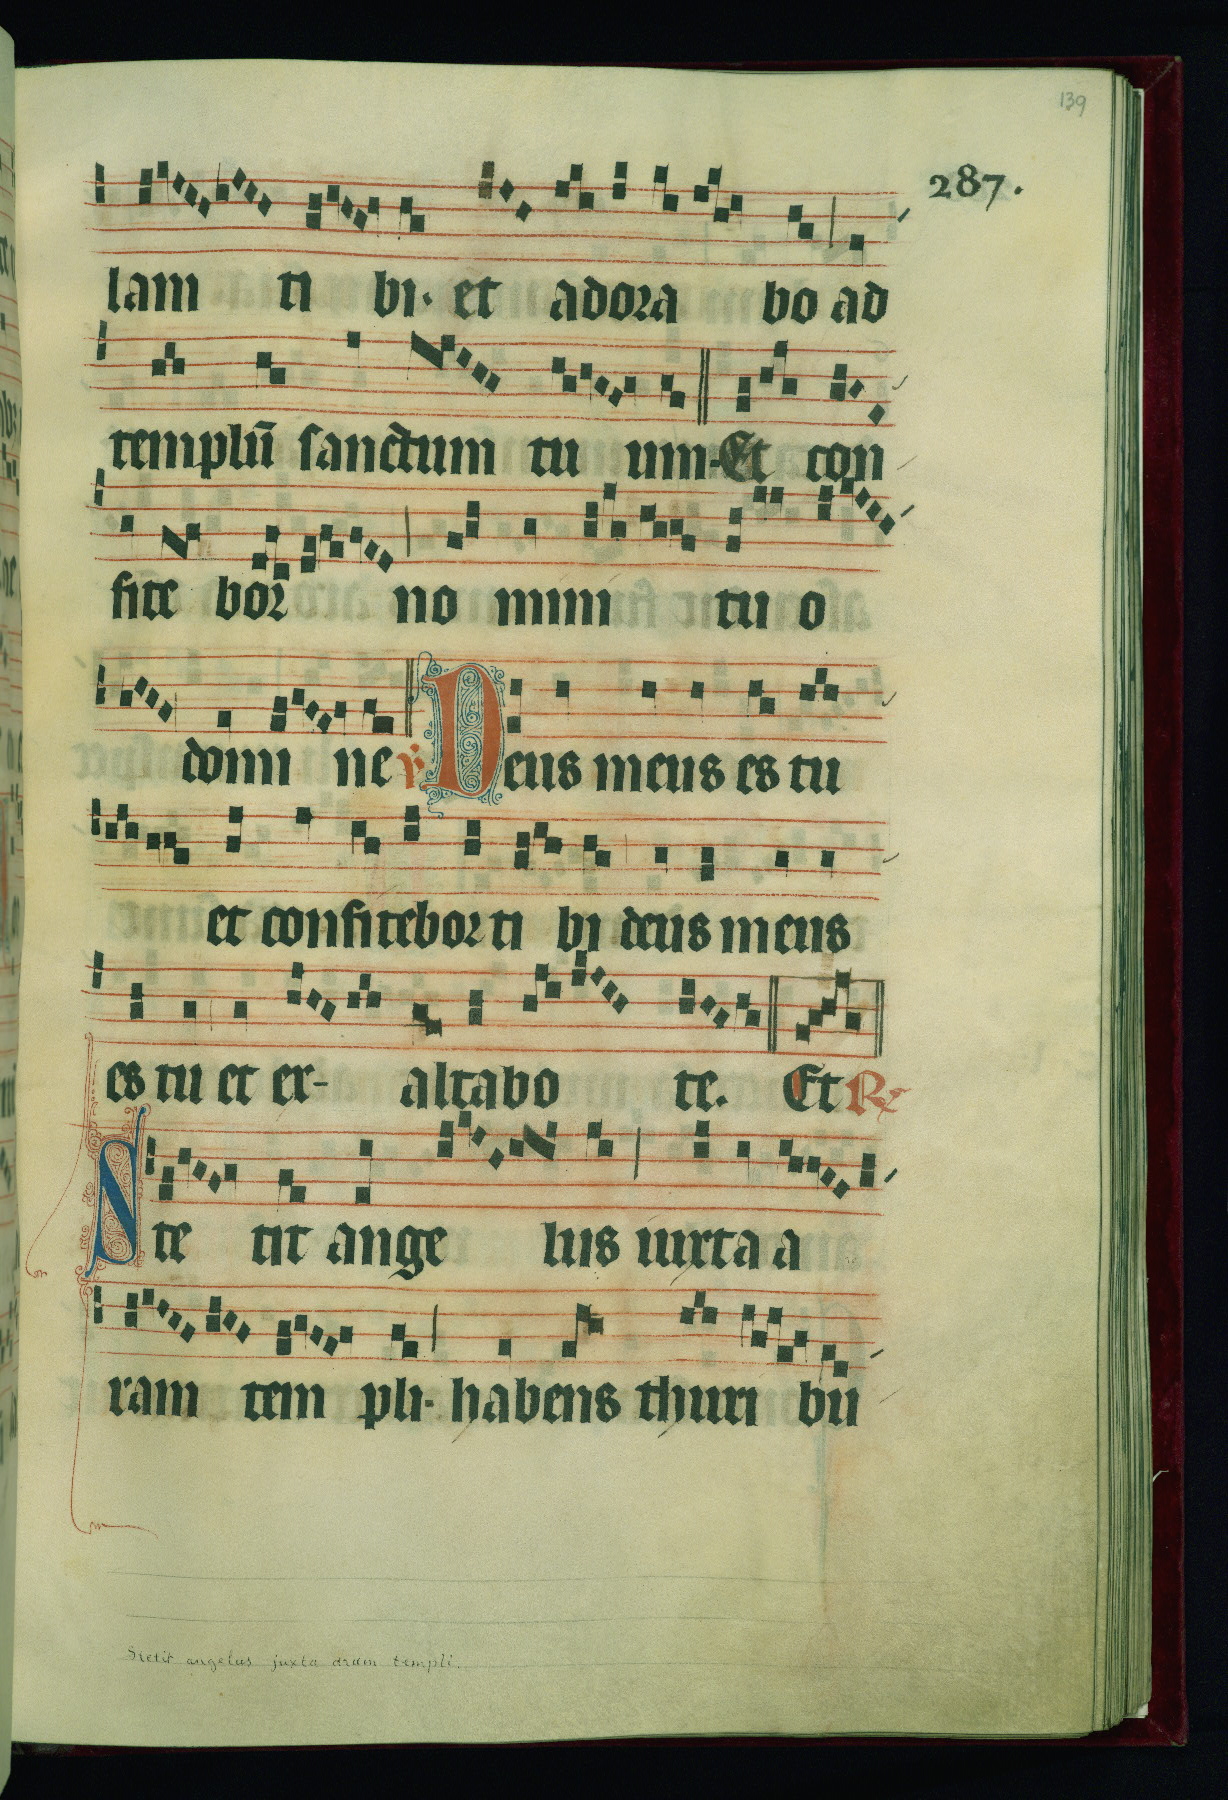 139
287.
lam ti bi. et adora bo ad
templū sanctum tu um. Et con
fite bor no mini tu o
domi ne ℣ Deus meus es tu
et confitebor ti bi deus meus
es tu et ex- altabo te. Et ℟
Ste tit ange lus iuxta a
ram tem pli. habens thuri bu
Stetit angelus juxta aram templi.